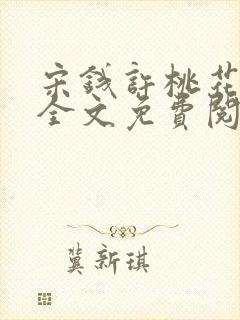 宋钱許桃花
全文免費閱
龚新琪